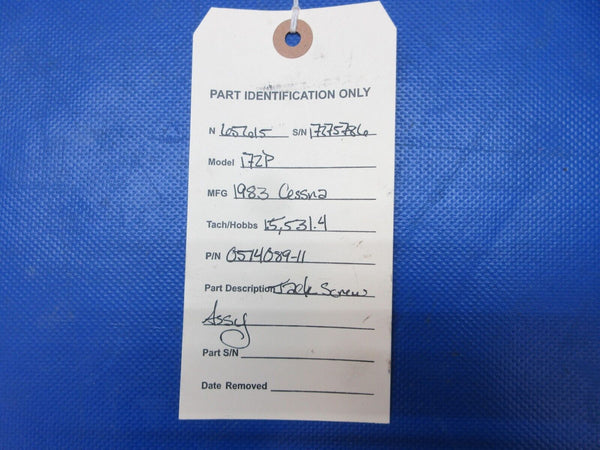 PART IDENTIFICATION ONLY
N 65615 S/N 17275786
Model 172P
MFG 1983 Cessna
Tach/Hobbs 15,531.4
P/N 0514089-11
Part Description Jack Screw
Assy
Part S/N
Date Removed